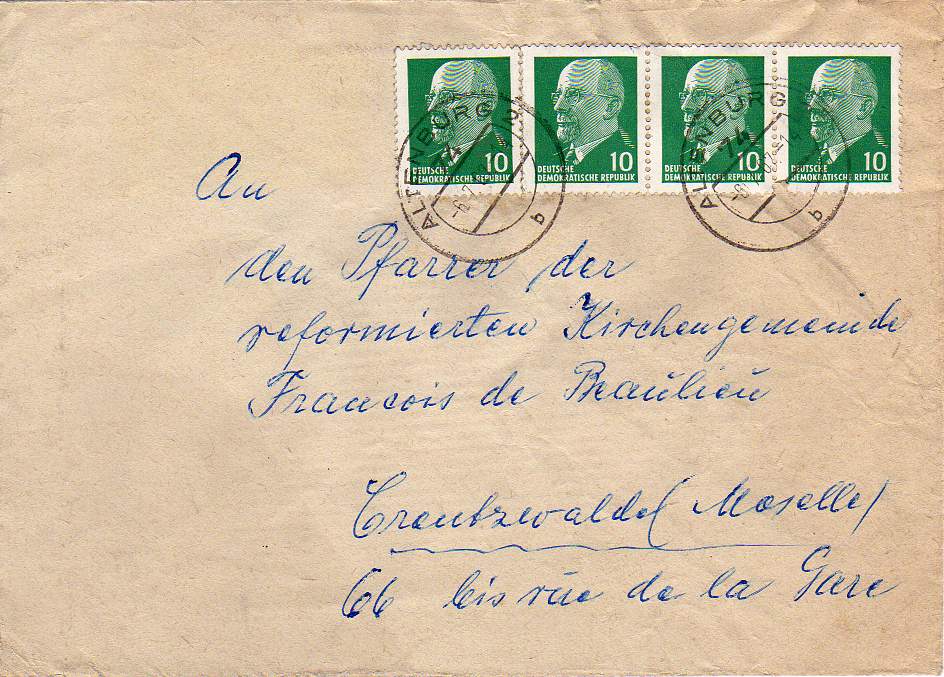 10 10 10 10
DEUTSCHE DEUTSCHE DEUTSCHE DEUTSCHE
DEMOKRATISCHE REPUBLIK DEMOKRATISCHE REPUBLIK DEMOKRATISCHE REPUBLIK DEMOKRATISCHE REPUBLIK
74 ALTENBURG 2 b
74 ALTENBURG b
An
den Pfarrer der
reformierten Kirchengemeinde
Francois de Beaulieu
Creutzwalde (Moselle)
66 bis rue de la Gare